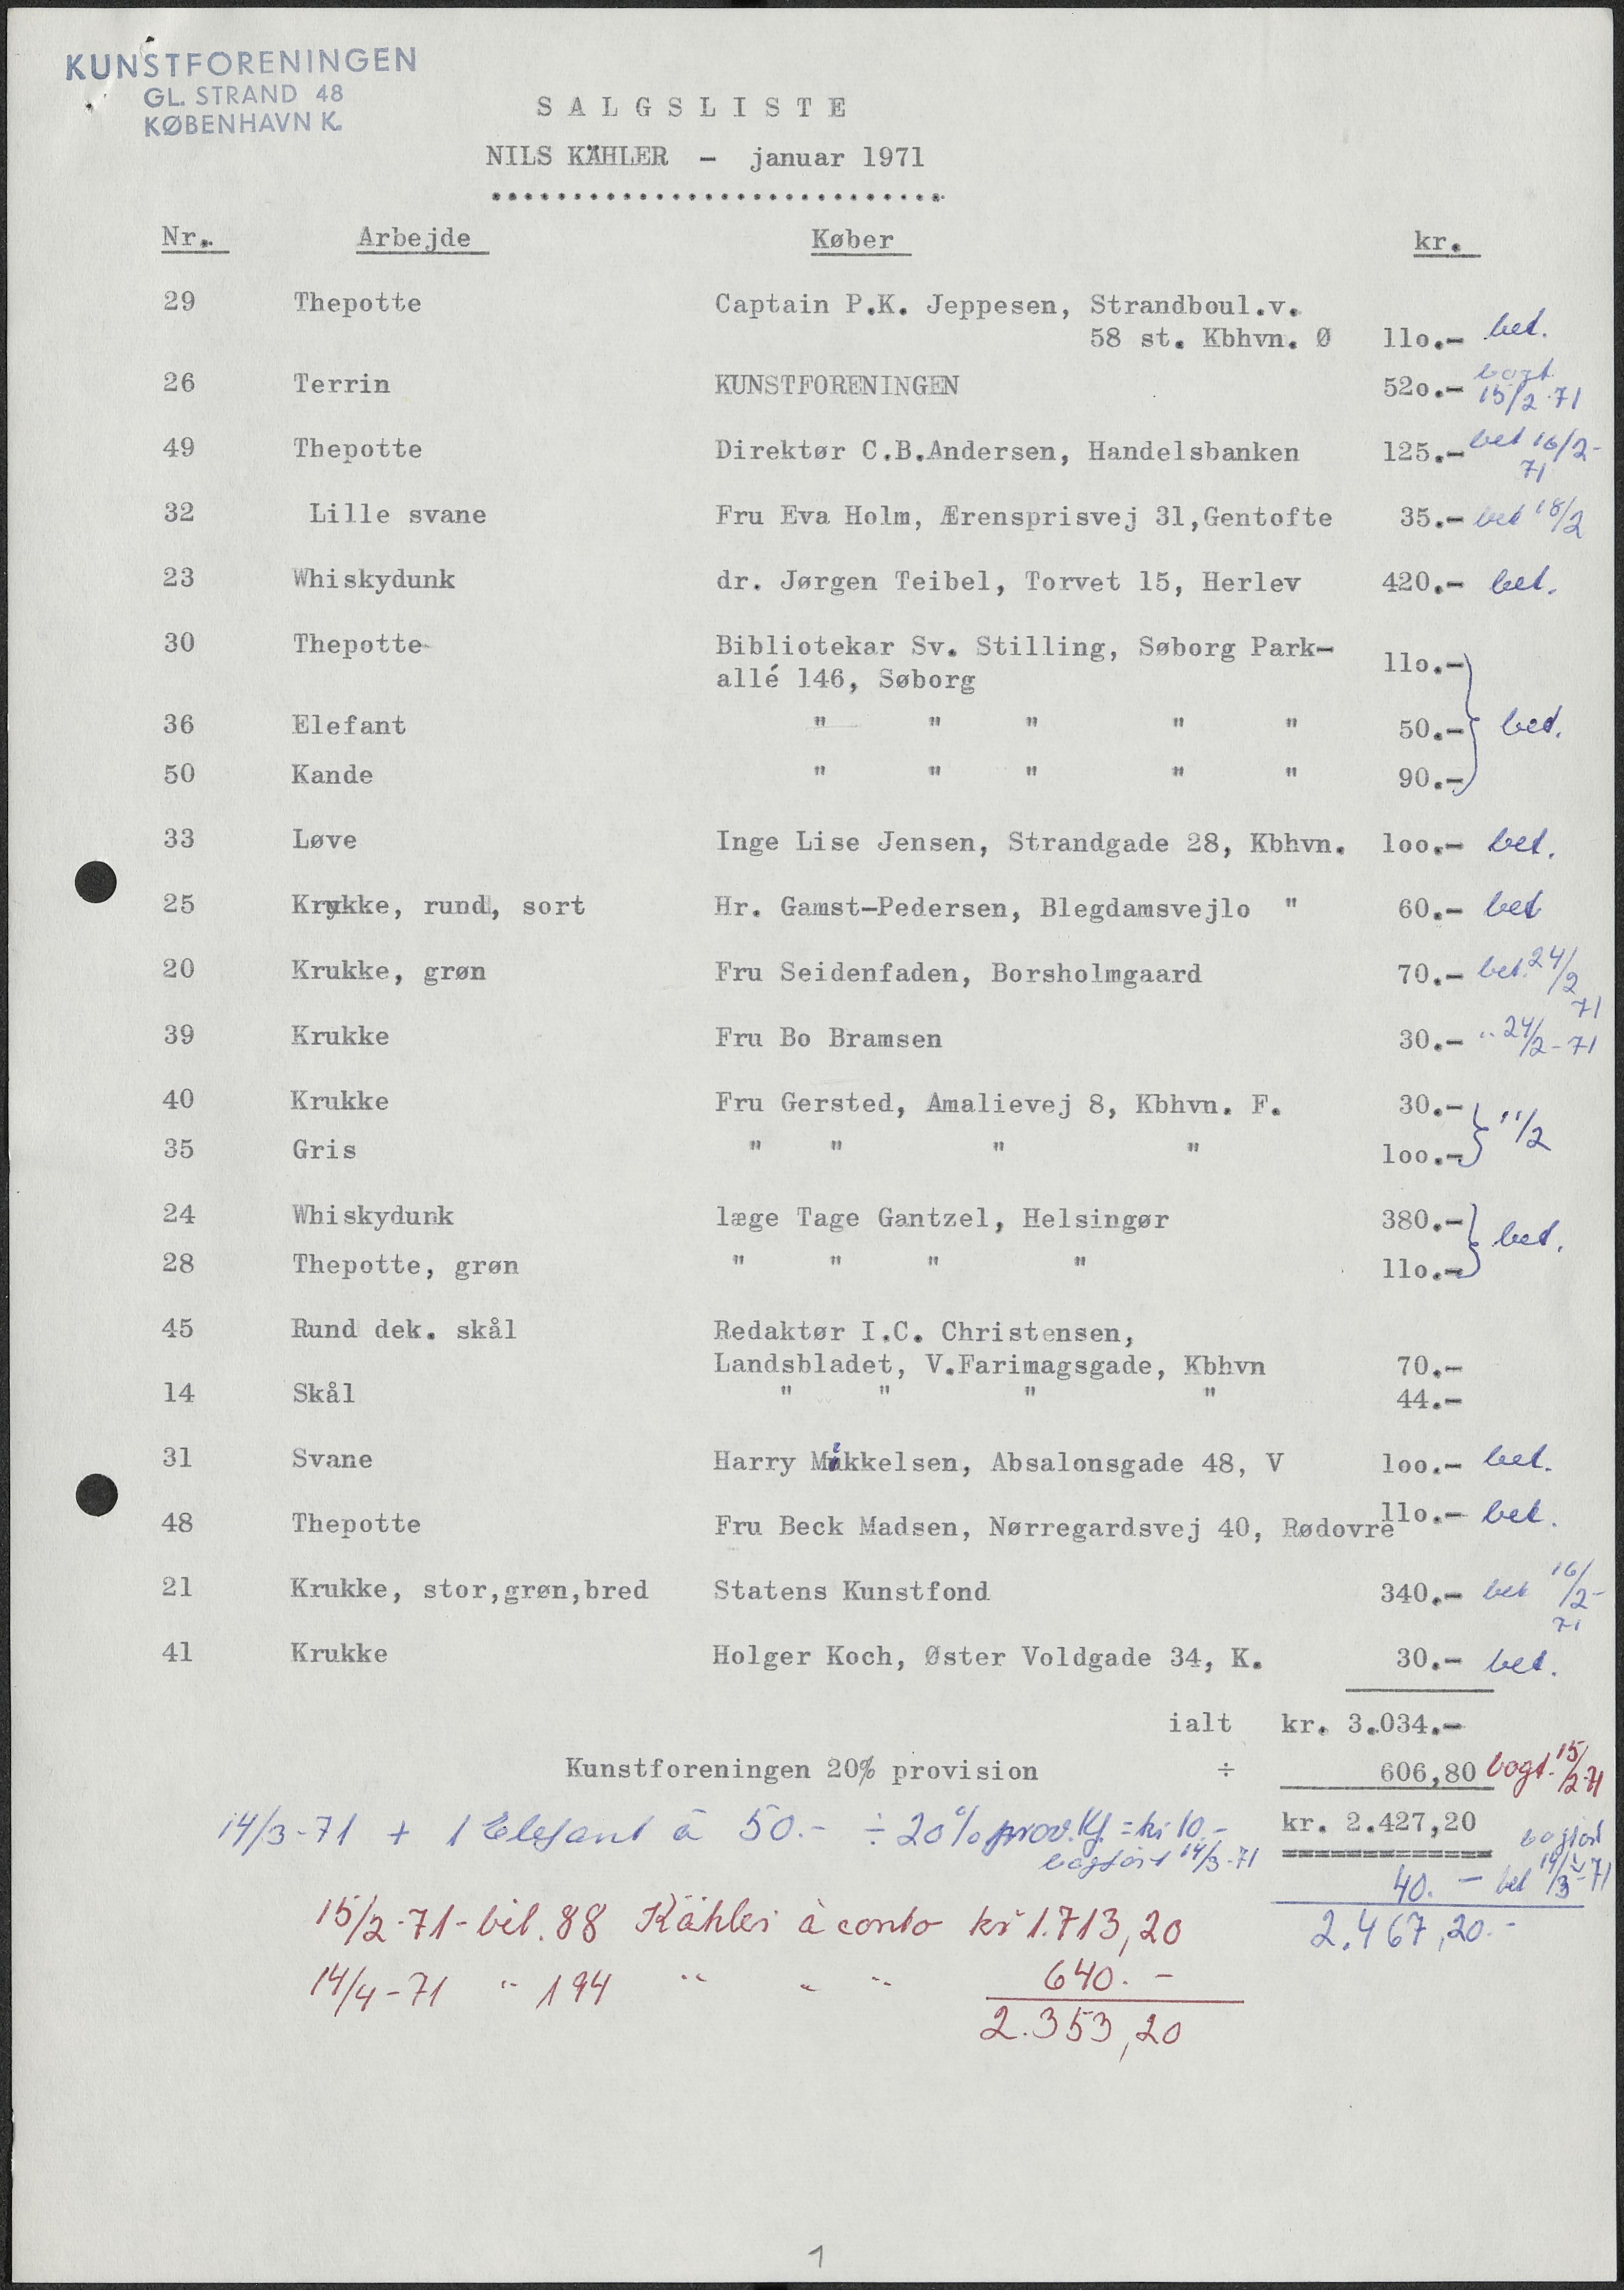 KUNSTFORENINGEN
GL. STRAND 48
KØBENHAVN K.
SALGSLISTE
NILS KÄHLER - januar 1971
Nr. Arbejde Køber kr.
29 Thepotte Captain P.K. Jeppesen, Strandboul.v.
58 st. Kbhvn. Ø 110.- bet.
26 Terrin KUNSTFORENINGEN 520.- bogt. 15/2-71
49 Thepotte Direktør C.B.Andersen, Handelsbanken 125.- bet 16/2-71
32 Lille svane Fru Eva Holm, Ærensprisvej 31,Gentofte 35.- bet 18/2
23 Whiskydunk dr. Jørgen Teibel, Torvet 15, Herlev 420.- bet.
30 Thepotte Bibliotekar Sv. Stilling, Søborg Park-
allé 146, Søborg 110.-
36 Elefant " " " " " 50.- bet.
50 Kande " " " " " 90.-
33 Løve Inge Lise Jensen, Strandgade 28, Kbhvn. 100.- bet.
25 Krukke, rund, sort Hr. Gamst-Pedersen, Blegdamsvej10 " 60.- bet
20 Krukke, grøn Fru Seidenfaden, Borsholmgaard 70.- bet. 24/2 71
39 Krukke Fru Bo Bramsen 30.- " 24/2-71
40 Krukke Fru Gersted, Amalievej 8, Kbhvn. F. 30.-
35 Gris " " " " 100.- 11/2
24 Whiskydunk læge Tage Gantzel, Helsingør 380.-
28 Thepotte, grøn " " " " 110.- bet.
45 Rund dek. skål Redaktør I.C. Christensen,
Landsbladet, V.Farimagsgade, Kbhvn 70.-
14 Skål " " " " 44.-
31 Svane Harry Mikkelsen, Absalonsgade 48, V 100.- bet.
48 Thepotte Fru Beck Madsen, Nørregardsvej 40, Rødovre 110.- bet.
21 Krukke, stor,grøn,bred Statens Kunstfond 340.- bet 16/2-71
41 Krukke Holger Koch, Øster Voldgade 34, K. 30.- bet.
ialt kr. 3.034.-
Kunstforeningen 20% provision ÷ 606,80 bogt. 15/2-71
kr. 2.427,20
14/3-71 + 1 Elefant á 50.- ÷ 20% prov. Kf. = kr 10.-
bogført 14/3-71
bogført
40.- bet 14/3-71
2.467,20.-
15/2-71 - bil. 88 Kähler à conto kr 1.713,20
14/4-71 " 194 " " " 640.-
2.353,20
1